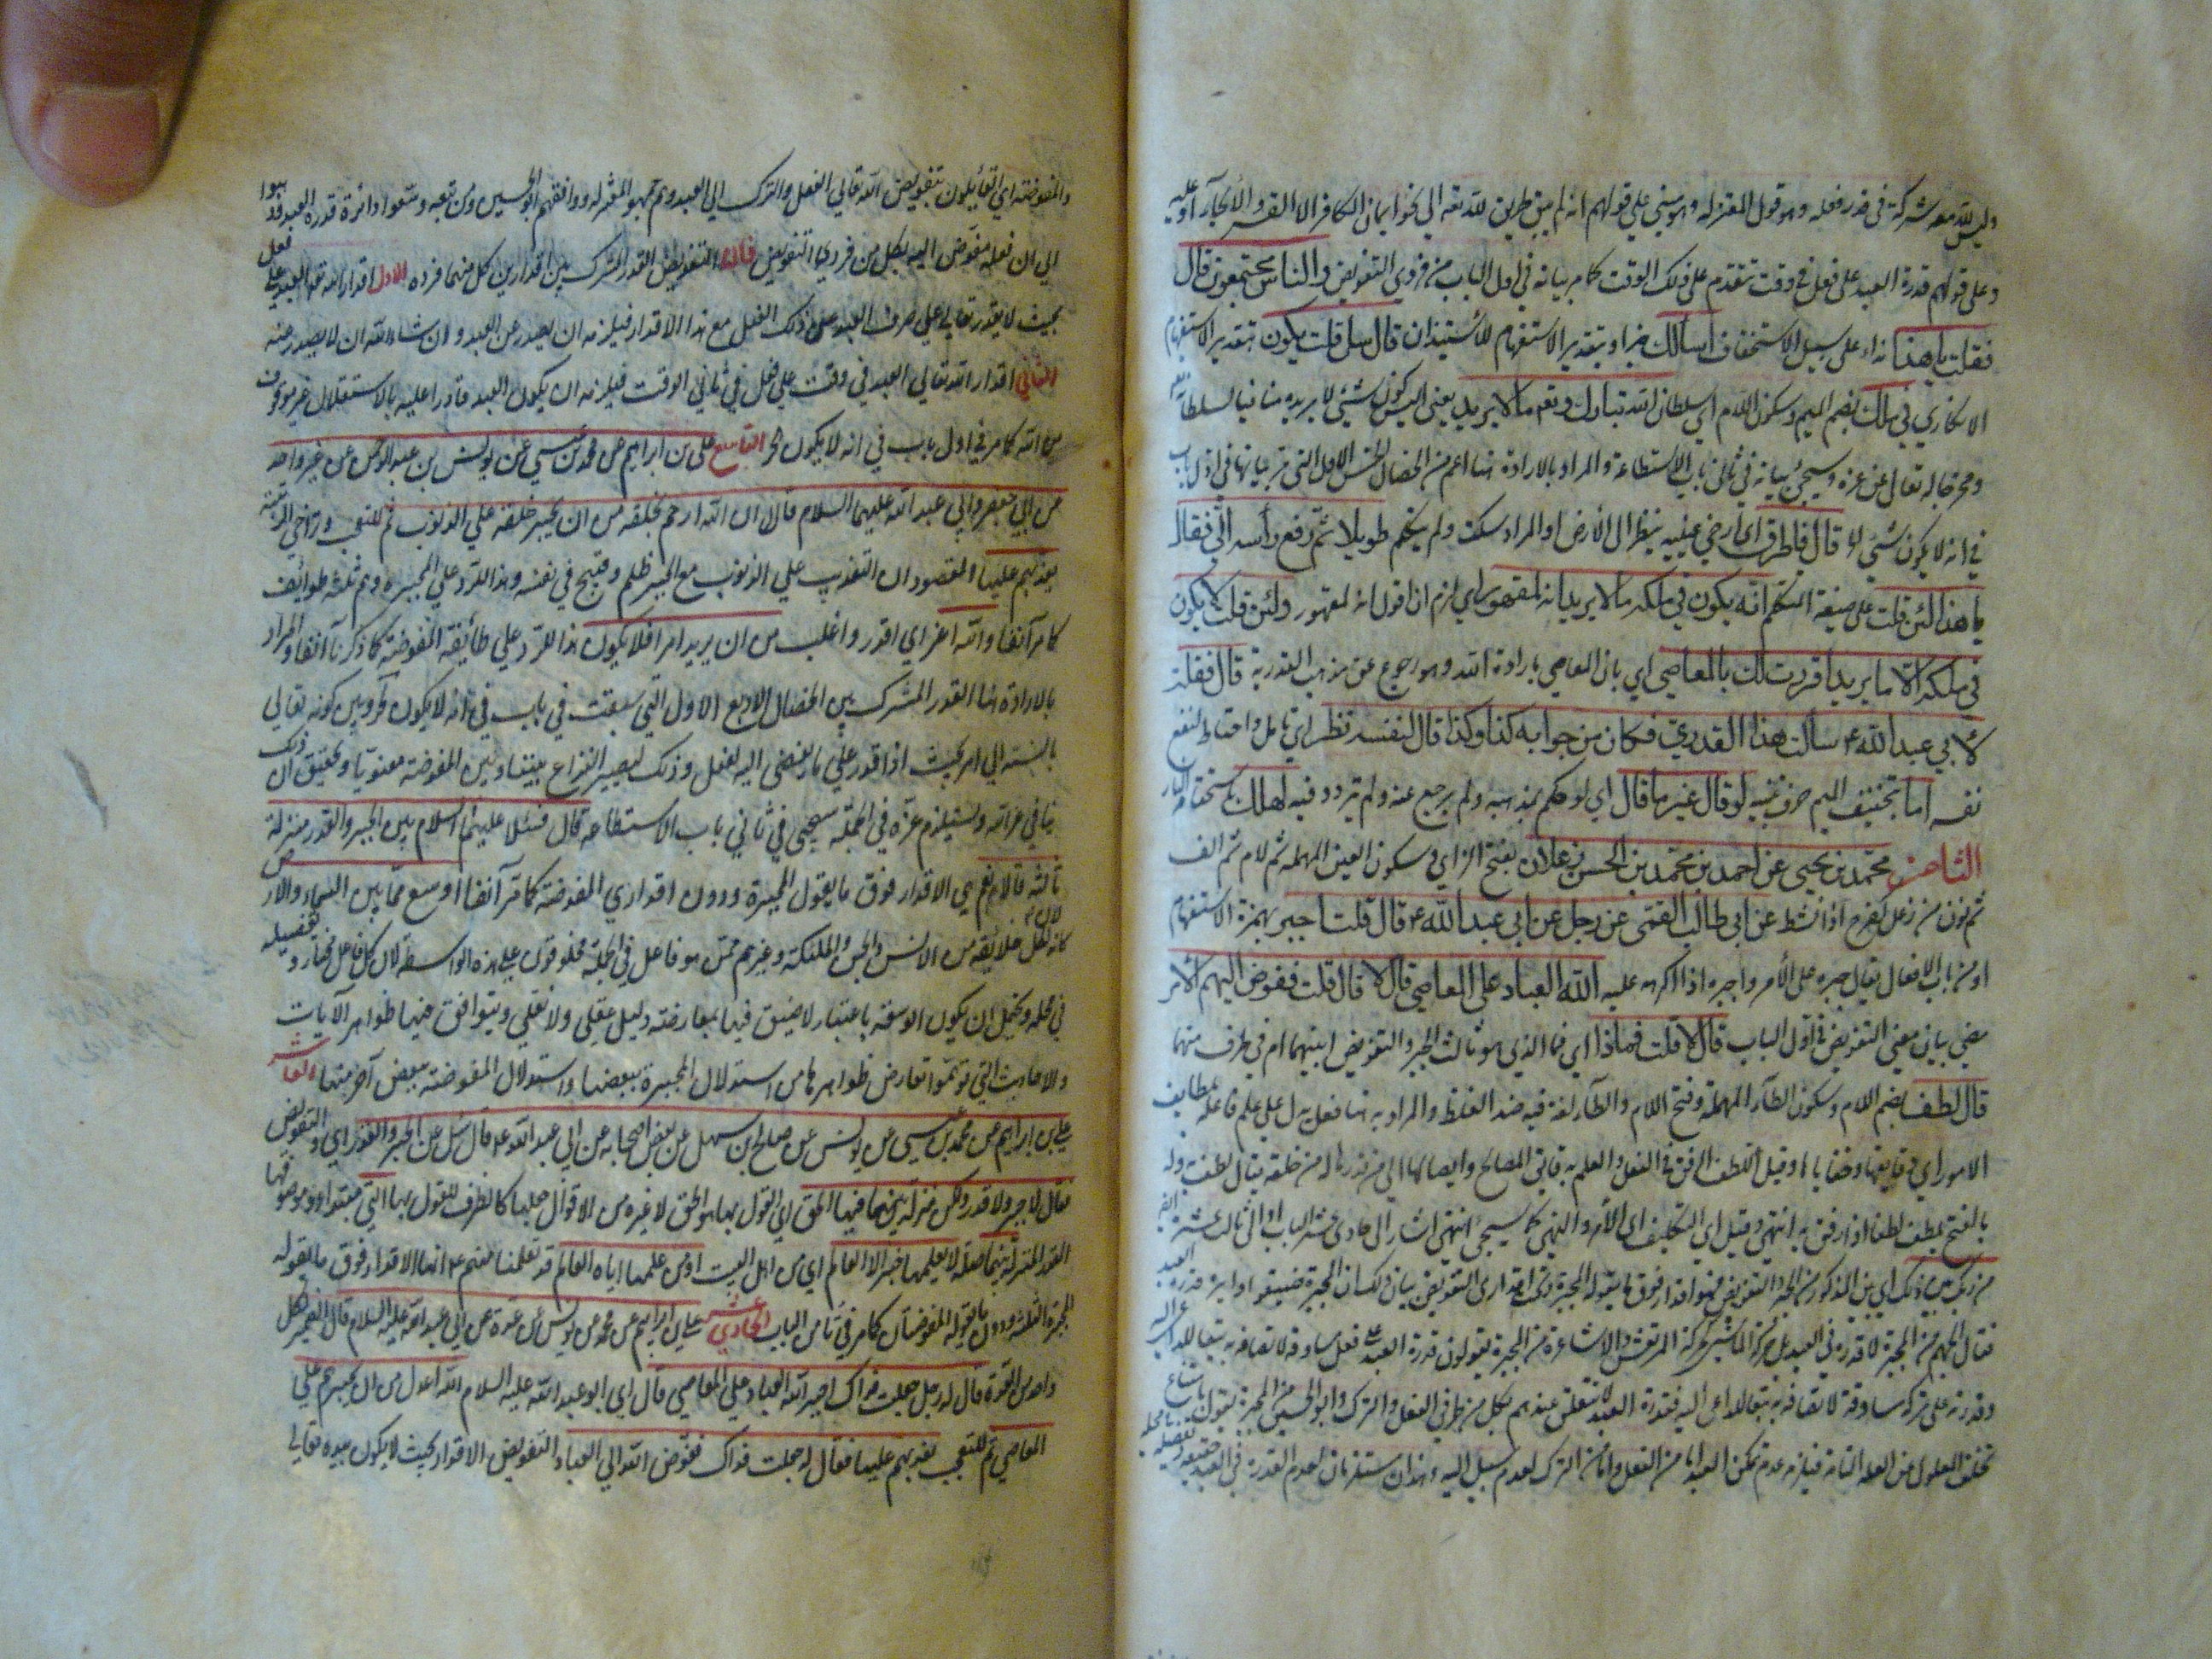 وليس لله معه شركة في قدر فعله وهو قول المعتزلة وهو مبني على قولهم انه لم يبق طريق لله تعالى الى نحو ايمان الكافر الا القسر والالجاء او عليه
وعلى قولهم قدرة العبد على فعل في وقت تتقدم على ذلك الوقت كما مر بيانه في اول الباب من فردي التفويض والناس مجتمعون قال
فقلت يا هذا نداء على سبيل الاستخفاف اسألك خبر او بتقدير الاستفهام للاستيذان قال سل قلت يكون بتقدير الاستفهام
الانكاري في ملك بضم الميم وسكون اللام اي سلطان الله تبارك وتعالى ما لا يريد يعني اليس كون شيء لا يريده منافيا لسلطانه
ومخرجا له تعالى عن عزه وسيجيء بيانه في ثاني باب الاستطاعة والمراد بالارادة هنا اعم من الخصال الخمس الاول التي مر بيانها في اول باب
في انه لا يكون شيء الخ قال فاطرق اي ارخى عينيه ينظر الى الارض او المراد سكت ولم يتكلم طويلا ثم رفع رأسه الي فقال
يا هذا لئن قلت على صيغة المتكلم انه يكون في ملكه ما لا يريد انه لمقهور اي لزم ان اقول انه لمقهور ولئن قلت لا يكون
في ملكه الا ما يريد اقررت لك بالمعاصي اي بان المعاصي بارادة الله وهو رجوع عن مذهب القدرية قال فقلت
لابي عبد الله ع سألت هذا القدري فكان من جوابه كذا وكذا قال لنفسه نظر اي تامل واحتاط لنفع
نفسه اما بتخفيف الميم حرف تنبيه لو قال غير ما قال اي لو حكم بمذهبه ولم يرجع عنه ولم يتردد فيه لهلك استحق النار
الثامن محمد بن يحيى عن احمد بن محمد بن الحسن زعلان بفتح الزاي وسكون العين المهملة ثم لام ثم الف
ثم نون من زعل كفرح اذا نشط عن ابي طالب القمي عن رجل عن ابي عبد الله ع قال قلت اجبر بهمزة الاستفهام
او من باب الافعال يقال جبره على الامر واجبره اذا اكرهه عليه الله العباد على المعاصي قال لا قال قلت ففوض اليهم الامر
مضى بيان معنى التفويض في اول الباب قال لا قلت فماذا اي فما الذي هو ثالث الجبر والتفويض ابينهما ام في طرف منهما
قال لطف بضم اللام وسكون الطاء المهملة وفتح اللام والطاء لغة فيه ضد الغلظ والمراد به هنا فعل يدل على علم فاعله بلطايف
الامور اي دقايقها وخفاياها وقيل اللطف الرفق في الفعل والعلم بدقائق المصالح وايصالها الى من قدرها له من خلقه يقال لطف به وله
بالفتح يلطف لطفا اذا رفق به انتهى وقيل اي التكليف اي الامر والنهي كما سيجيء انتهى اشار الى حادي عشر الباب او الى ثالث عشره
من ربك بين ذلك اي بين المذكور من الجبر والتفويض فهو اقدار فوق ما يقوله المجبرة وتحت اقداري التفويض بيان ذلك ان المجبرة ضيقوا دايرة قدرة العبد
فقال الجهم من المجبرة لا قدرة في العبد بل حركة الماشي كحركة المرتعش والاشاعرة من المجبرة يقولون قدرة العبد على فعل مساوقة لاتصافه به تبعا للداعي اليه
وقدرته على تركه مساوقة لاتصافه به تبعا للداعي اليه فقدرة العبد لا تتعلق عندهم بكل من طرفي الفعل والترك وابو الحسين من المجبرة يقول بامتناع
تخلف المعلول عن العلة التامة فيلزمه عدم تمكن العبد اما من الفعل واما من الترك لعدم سبيل اليه وهذان مستلزمان لعدم القدرة في العبد
والمفوضة اي القائلون بتفويض الله تعالى الفعل والترك الى العبد وهم جمهور المعتزلة ووافقهم ابو الحسين ومن تبعه وسعوا دائرة قدرة العبد فذهبوا
الى ان فعله مفوض اليه بكل من فردي التفويض فان التفويض القدر المشترك بين اقدارين كل منهما فرده الاول اقدار الله تعالى العبد على فعل
بحيث لا يقدر تعالى على صرف العبد عن ذلك الفعل مع هذا الاقدار فيلزمه ان يصدر عن العبد وان شاء الله ان لا يصدر عنه
الثاني اقدار الله تعالى العبد في وقت على فعل في ثاني الوقت فيلزمه ان يكون العبد قادرا عليه بالاستقلال غير موقوف
من الله كما مر في اول باب في انه لا يكون الخ التاسع علي بن ابراهيم عن محمد بن عيسى عن يونس بن عبد الرحمن عن غير واحد
عن ابي جعفر وابي عبد الله عليهما السلام قالا ان الله ارحم بخلقه من ان يجبر خلقه على الذنوب ثم للتعجب وتراخي الرتبة
يعذبهم عليها والمقصود ان التعذيب على الذنوب مع الجبر ظلم وقبيح في نفسه وهذا للرد على المجبرة وهم ثلثة طوائف
كما مر آنفا والله اعز اي اقدر واغلب من ان يريد امرا فلا يكون هذا للرد على طائفة المفوضة كما ذكرنا آنفا والمراد
بالارادة هنا القدر المشترك بين الخصال الاربع الاول التي سبقت في باب في انه لا يكون الخ وبين كونه تعالى
بالنسبة الى امر بحيث اذا قدر على ما يفضي اليه لفعل وذلك ليصير النزاع بيننا وبين المفوضة معنويا وتحقيق ان ذلك
ينافي عزته ويستلزم عزه في الجملة سيجيء في ثاني باب الاستطاعة قال فسئلا عليهما السلام هل بين الجبر والقدر منزلة
ثالثة قالا نعم هي الاقدار فوق ما يقول المجبرة ودون اقداري المفوضة كما مر آنفا اوسع مما بين السماء والارض
لان افعال خلائقه من الانس والجن والملئكة وغيرهم ممن هو فاعل في الجملة مخلوقون على هذه الواسطة لان كل فاعل مختار وتفصيله
في محله ويحتمل ان يكون الاوسعية باعتبار لا ضيق فيها بمعارضته دليل عقلي ولا نقلي ويتوافق فيها ظواهر الآيات
والاحاديث التي توهموا تعارض ظواهرها من استدلال المجبرة ببعضها واستدلال المفوضة ببعض آخر منها العاشر
علي بن ابراهيم عن محمد بن عيسى عن يونس عن صالح بن سهل عن بعض اصحابه عن ابي عبد الله ع قال سئل عن الجبر والقدر اي والتفويض
فقال لا جبر ولا قدر ولكن منزلة بينهما فيها الحق اي القول بها هو الحق لا غيره من الاقوال جعلها كالظرف للقول بها التي مبتدا وموصوفها
القدر المنزلة بينهما صلة لا يعلمها خبر الا العالم اي من اهل البيت او من علمها اياه العالم قد تعلمنا منهم ع انها الاقدار فوق ما يقوله
المجبرة الثلثة ودون ما يقوله المفوضتان كما مر في ثامن الباب الحادي عشر علي بن ابراهيم عن محمد عن يونس عن عدة عن ابي عبد الله عليه السلام قال
واحد من العدة قال له رجل جعلت فداك اجبر الله العباد على المعاصي قال اي ابو عبد الله عليه السلام الله اعدل من ان يجبرهم على
المعاصي ثم للتعجب يعذبهم عليها فقال له جعلت فداك ففوض الله الى العباد التفويض الاقدار بحيث لا يكون بيده تعالى